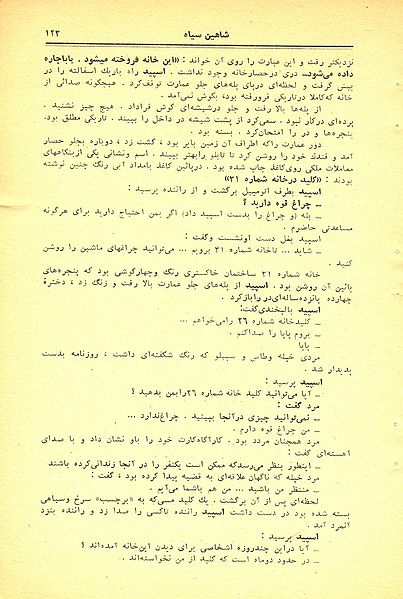 شاهین سیاه ۱۲۳
نزدیکتر رفت و این عبارت را روی آن خواند : «این خانه فروخته میشود . یاباجاره
داده می‌شود.» دری درحصارخانه وجود نداشت . اسپید راه باریک اسفالته را در
پیش گرفت و لحظه‌ای درپای پله‌های جلو عمارت توقف کرد . هیچگونه صدائی از
خانه که کاملا درتاریکی فرورفته بود، بگوش نمی‌آمد .
از پله‌ها بالا رفت و جلو درشیشه‌ای گوش فراداد . هیچ چیز نشنید .
پرده‌ای درکار نبود . سعی‌کرد از پشت شیشه در داخل را ببیند . تاریکی مطلق بود.
پنجره‌ها و در را امتحان‌کرد . بسته بود .
دور عمارت راکه اطراف آن زمین بایر بود ، گشت زد ، دوباره بجلو حصار
آمد و فندك خود را روشن کرد تا تابلو رابهتر ببیند . اسم ونشانی یکی ازبنگاههای
معاملات ملکی روی‌کاغذ چاپ شده بود . درپائین کاغذ بامداد آبی رنگ چنین نوشته
بودند : «کلید درخانه شماره ۳۱»
اسپید بطرف اتومبیل برگشت و از راننده پرسید :
ـ چراغ قوه دارید ؟
ـ بله (و چراغ را بدست اسپید داد) اگر بمن احتیاج دارید برای هرگونه
مساعدتی حاضرم .
اسپید بغل دست اونشست وگفت :
ـ شاید ... تاخانه شماره ۳۱ برویم ... می‌توانید چراغهای ماشین را روشن
کنید .
خانه شماره ۳۱ ساختمان خاکستری رنگ وچهارگوشی بود که پنجره‌های
پائین آن روشن بود . اسپید از پله‌های جلو عمارت بالا رفت و زنگ زد ، دختره
چهارده پانزده‌ساله‌ای‌در رابازکرد .
اسپید بالبخندی‌گفت:
ـ کلیدخانه شماره ۲۶ رامی‌خواهم ...
ـ بروم پاپا را صداکنم .
ـ پاپا
مردی خپله وطاس و سبیلو که رنگ شکفته‌ای داشت ، روزنامه بدست
پدیدار شد .
اسپید پرسید :
ـ آیا می‌توانید کلید خانه شماره ۲۶رابمن بدهید ؟
مرد گفت :
ـ نمی‌توانید چیزی درآنجا ببینید . چراغ‌ندارد ...
ـ من چراغ قوه دارم .
مرد همچنان مردد بود . کارآگاه‌کارت خود را باو نشان داد و با صدای
آهسته‌ای گفت :
ـ اینطور بنظر می‌رسدکه ممکن است یکنفر را در آنجا زندانی‌کرده باشند
مرد خپله که ناگهان علاقه‌ای به قضیه پیدا کرده بود ، گفت :
ـ منتظر من باشید ... من هم باشما می‌آیم .
لحظه‌ای پس از آن برگشت . یك کلید مسی‌که به «برچسب» سرخ وسیاهی
بسته شده بود در دست داشت اسپید راننده تاکسی را صدا زد و راننده بنزد
آنمرد آمد .
اسپید پرسید :
ـ آیا دراین چندروزه اشخاصی برای دیدن این‌خانه آمده‌اند ؟
ـ در حدود دوماه است که کلید از من نخواسته‌اند .